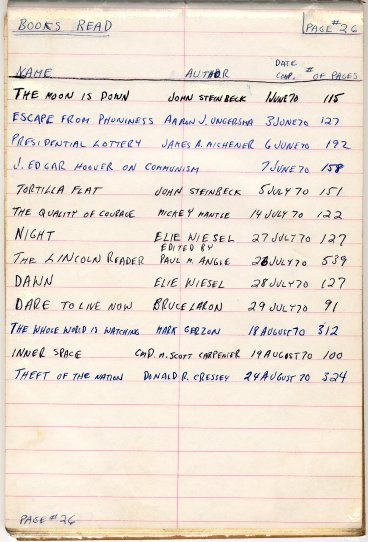 BOOKS READ PAGE #26
NAME AUTHOR DATE COMP. # OF PAGES
THE MOON IS DOWN JOHN STEINBECK 1 JUNE 70 115
ESCAPE FROM PHONINESS AARON J. UNGERSMA 3 JUNE 70 127
PRESIDENTIAL LOTTERY JAMES A. MICHENER 6 JUNE 70 192
J. EDGAR HOOVER ON COMMUNISM 7 JUNE 70 158
TORTILLA FLAT JOHN STEINBECK 5 JULY 70 151
THE QUALITY OF COURAGE MICKEY MANTLE 14 JULY 70 122
NIGHT ELIE WIESEL 27 JULY 70 127
THE LINCOLN READER EDITED BY PAUL M. ANGLE 28 JULY 70 539
DAWN ELIE WIESEL 28 JULY 70 127
DARE TO LIVE NOW BRUCE LARSON 29 JULY 70 91
THE WHOLE WORLD IS WATCHING MARK GERZON 18 AUGUST 70 312
INNER SPACE CMD. M. SCOTT CARPENTER 19 AUGUST 70 100
THEFT OF THE NATION DONALD R. CRESSEY 24 AUGUST 70 324
PAGE #26